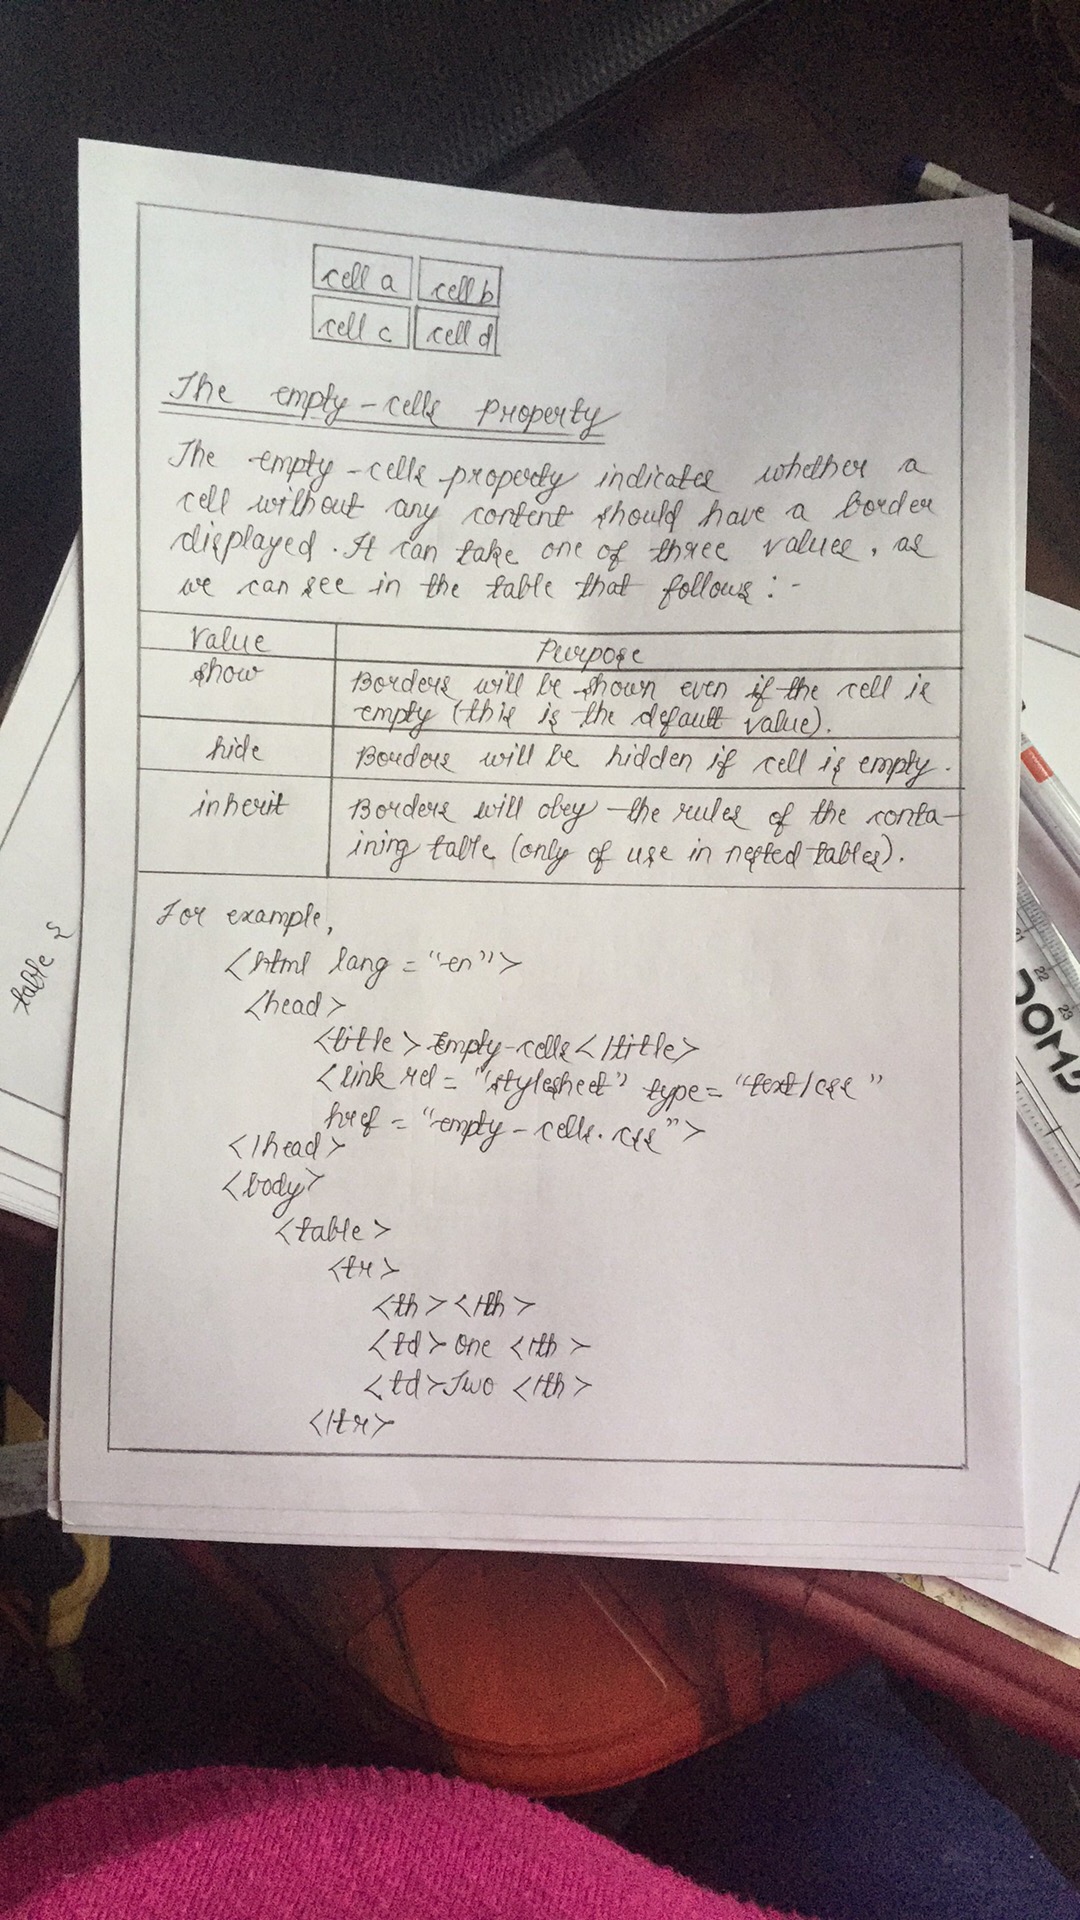 cell a cell b
cell c cell d
The empty-cells Property
The empty-cells property indicates whether a
cell without any content should have a border
displayed. It can take one of three values, as
we can see in the table that follows:-
Value Purpose
show Borders will be shown even if the cell is
empty (this is the default value).
hide Borders will be hidden if cell is empty.
inherit Borders will obey the rules of the conta-
ining table (only of use in nested tables).
For example,
<html lang = "en">
<head>
<title> Empty-cells </title>
<link rel = "stylesheet" type= "text/css"
href = "empty-cells.css">
</head>
<body>
<table>
<tr>
<th></th>
<td> One </th>
<td> Two </th>
</tr>
table 2
21
22
23
DOMS